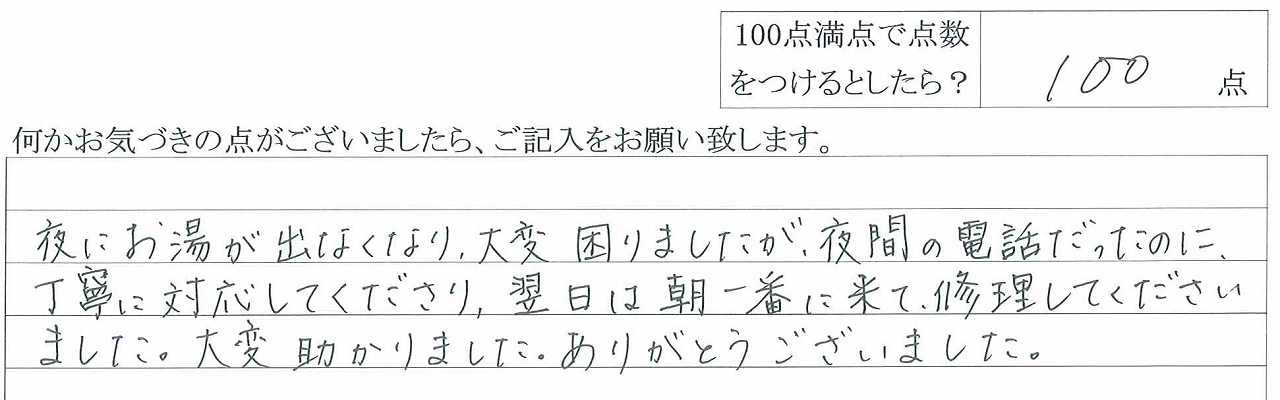 100点満点で点数
をつけるとしたら？
100 点
何かお気づきの点がございましたら、ご記入をお願い致します。
夜にお湯が出なくなり、大変困りましたが、夜間の電話だったのに、
丁寧に対応してくださり、翌日は朝一番に来て、修理してください
ました。大変助かりました。ありがとうございました。